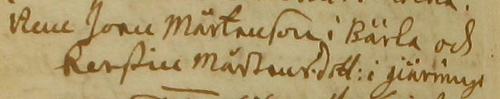 Joen Mårtenson i Bärla och
Kerstin Mårtens dott: i giäringe